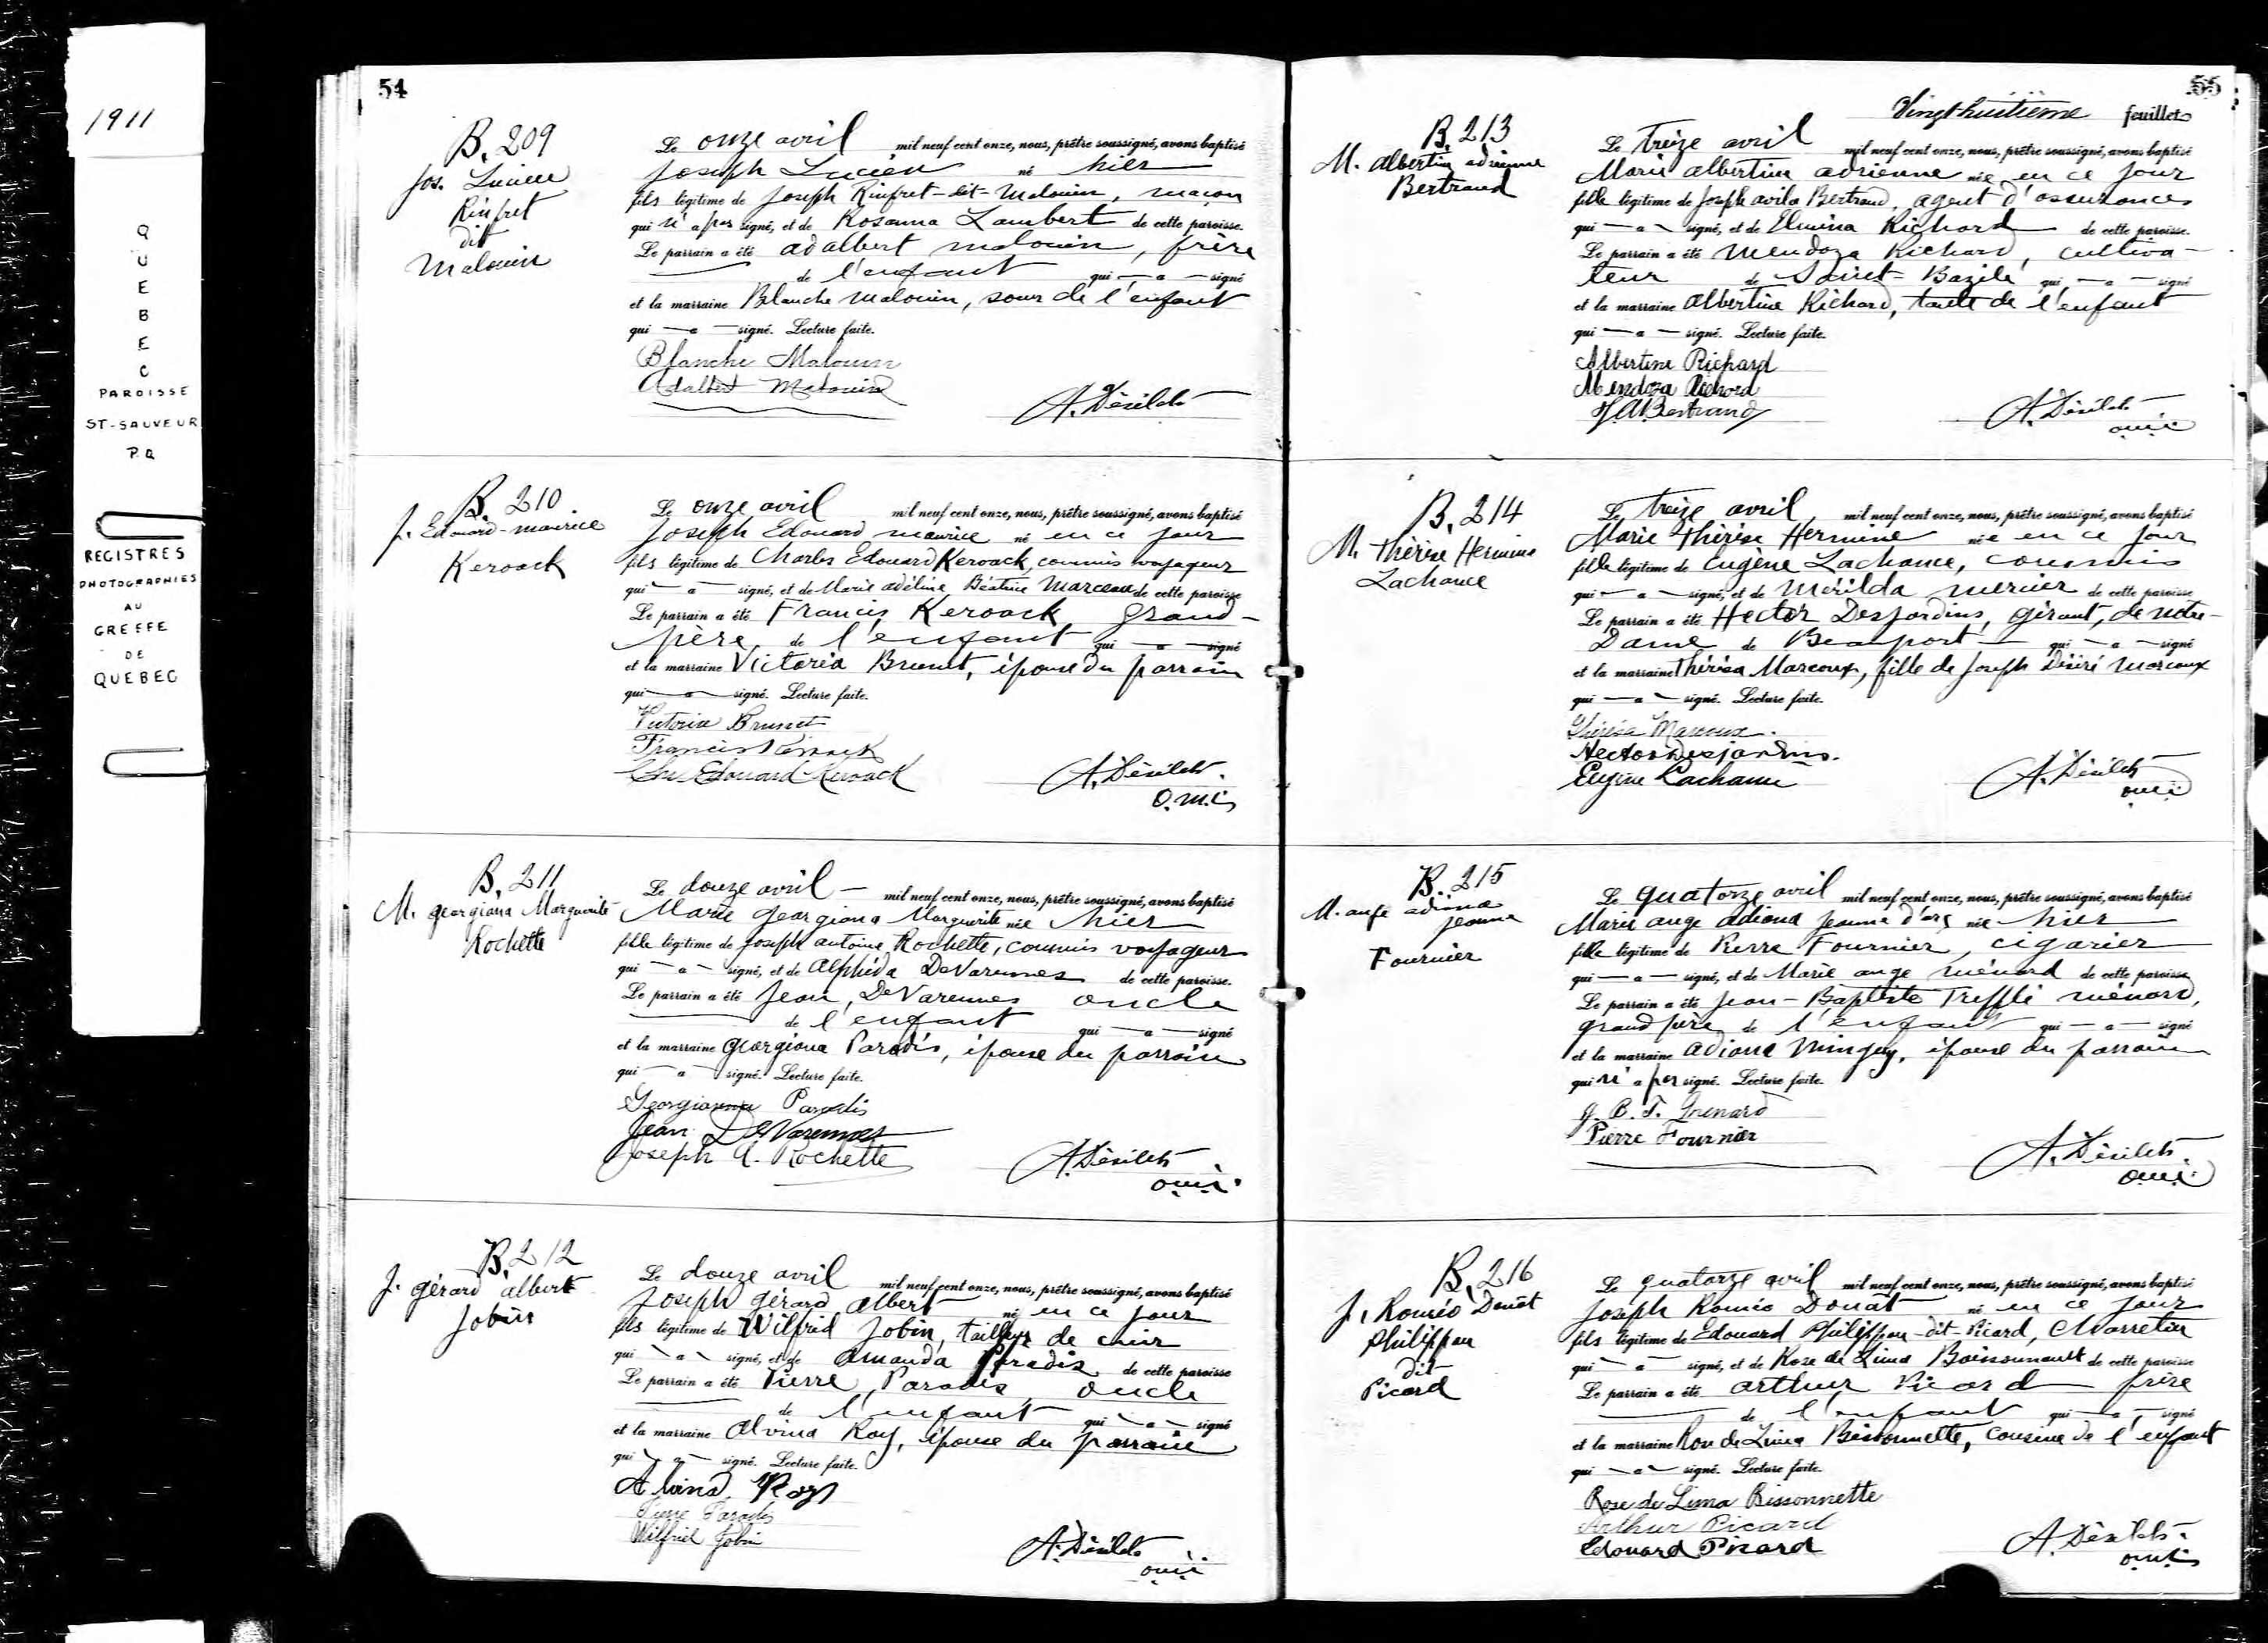 1911
QUEBEC
PAROISSE
ST-SAUVEUR
P.Q
REGISTRES
PHOTOGRAPHIES
AU
GREFFE
DE
QUEBEC
54
B. 209
Jos. Lucien
Rinfret
dit
Malouin
Le onze avril mil neuf cent onze, nous, prêtre soussigné, avons baptisé
Joseph Lucien né hier
fils légitime de Joseph Rinfret-dit-Malouin, maçon
qui n'a pas signé, et de Rosanna Lambert de cette paroisse.
Le parrain a été adalbert malouin, frère
de l'enfant qui — a — signé
et la marraine Blanche malouin, sœur de l'enfant
qui — a — signé. Lecture faite.
Blanche Malouin
Adalbert Malouin
A. Désilets
B. 210
J. Edouard-maurice
Kerouack
Le onze avril mil neuf cent onze, nous, prêtre soussigné, avons baptisé
Joseph Edouard maurice né en ce jour
fils légitime de Charles Edouard Kerouack, commis voyageur
qui — a — signé, et de Marie adéline Béatrice Marceau de cette paroisse
Le parrain a été Francis Kerouack grand-
père de l'enfant qui — a — signé
et la marraine Victoria Brunet, épouse du parrain
qui — a — signé. Lecture faite.
Victoria Brunet
Francis Kerouack
Chs Edouard Kerouack
A. Désilets
o.m.i.
B. 211
M. georgiana Marguerite
Rochette
Le douze avril — mil neuf cent onze, nous, prêtre soussigné, avons baptisé
Marie georgiana Marguerite née hier
fille légitime de Joseph antoine Rochette, commis voyageur
qui — a — signé, et de Alphéda DeVarennes de cette paroisse.
Le parrain a été Jean DeVarennes oncle
de l'enfant qui — a — signé
et la marraine georgiana Paradis, épouse du parrain
qui — a — signé. Lecture faite.
Georgianna Paradis
Jean DeVarennes
Joseph A. Rochette
A. Désilets
o.m.i.
B. 212
J. gérard albert
Jobin
Le douze avril mil neuf cent onze, nous, prêtre soussigné, avons baptisé
Joseph gérard albert né en ce jour
fils légitime de Wilfrid Jobin, tailleur de cuir
qui — a — signé, et de amanda Paradis de cette paroisse
Le parrain a été Pierre Paradis oncle
de l'enfant qui — a — signé
et la marraine Alvina Roy, épouse du parrain
qui — a — signé. Lecture faite.
Alvina Roy
Pierre Paradis
Wilfrid Jobin
A. Désilets
o.m.i.
55
Vingt-huitième feuillet
B. 213
M. albertine adrienne
Bertrand
Le treize avril mil neuf cent onze, nous, prêtre soussigné, avons baptisé
Marie albertine adrienne née en ce jour
fille légitime de Joseph avila Bertrand, agent d'assurances
qui — a — signé, et de Elmina Richard de cette paroisse.
Le parrain a été Mendoza Richard, cultiva-
teur de Saint-Bazile qui — a — signé
et la marraine albertine Richard, tante de l'enfant
qui — a — signé. Lecture faite.
Albertine Richard
Mendoza Richard
J A Bertrand
A. Désilets
o.m.i.
B. 214
M. Thérèse Hermine
Lachance
Le treize avril mil neuf cent onze, nous, prêtre soussigné, avons baptisé
Marie Thérèse Hermine née en ce jour
fille légitime de Eugène Lachance, commis
qui — a — signé, et de Mérilda mercier de cette paroisse
Le parrain a été Hector Desjardins, gérant, de notre-
Dame de Beauport qui — a — signé
et la marraine Thérèsa Marcoux, fille de Joseph Désiré Marcoux
qui — a — signé. Lecture faite.
Thérèsa Marcoux.
Hector Desjardins.
Eugène Lachance
A. Désilets
o.m.i.
B. 215
M. ange adiana
Jeanne
Fournier
Le quatorze avril mil neuf cent onze, nous, prêtre soussigné, avons baptisé
Marie ange adiana Jeanne d'arc née hier
fille légitime de Pierre Fournier, cigarier
qui — a — signé, et de Marie ange ménard de cette paroisse
Le parrain a été Jean-Baptiste Trefflé ménard,
grand père de l'enfant qui — a — signé
et la marraine adiana Minguy, épouse du parrain
qui n'a pas signé. Lecture faite.
J. B. T. Ménard
Pierre Fournier
A. Désilets
o.m.i.
B. 216
J. Roméo Donat
Philippon
dit
Picard
Le quatorze avril mil neuf cent onze, nous, prêtre soussigné, avons baptisé
Joseph Roméo Donat né en ce jour
fils légitime de Edouard Philippon-dit-Picard, charretier
qui — a — signé, et de Rose de Lima Boissonnault de cette paroisse
Le parrain a été arthur Picard frère
de l'enfant qui — a — signé
et la marraine Rose de Lima Bissonnette, cousine de l'enfant
qui — a — signé. Lecture faite.
Rose de Lima Bissonnette
Arthur Picard
Edouard Picard
A. Désilets
o.m.i.